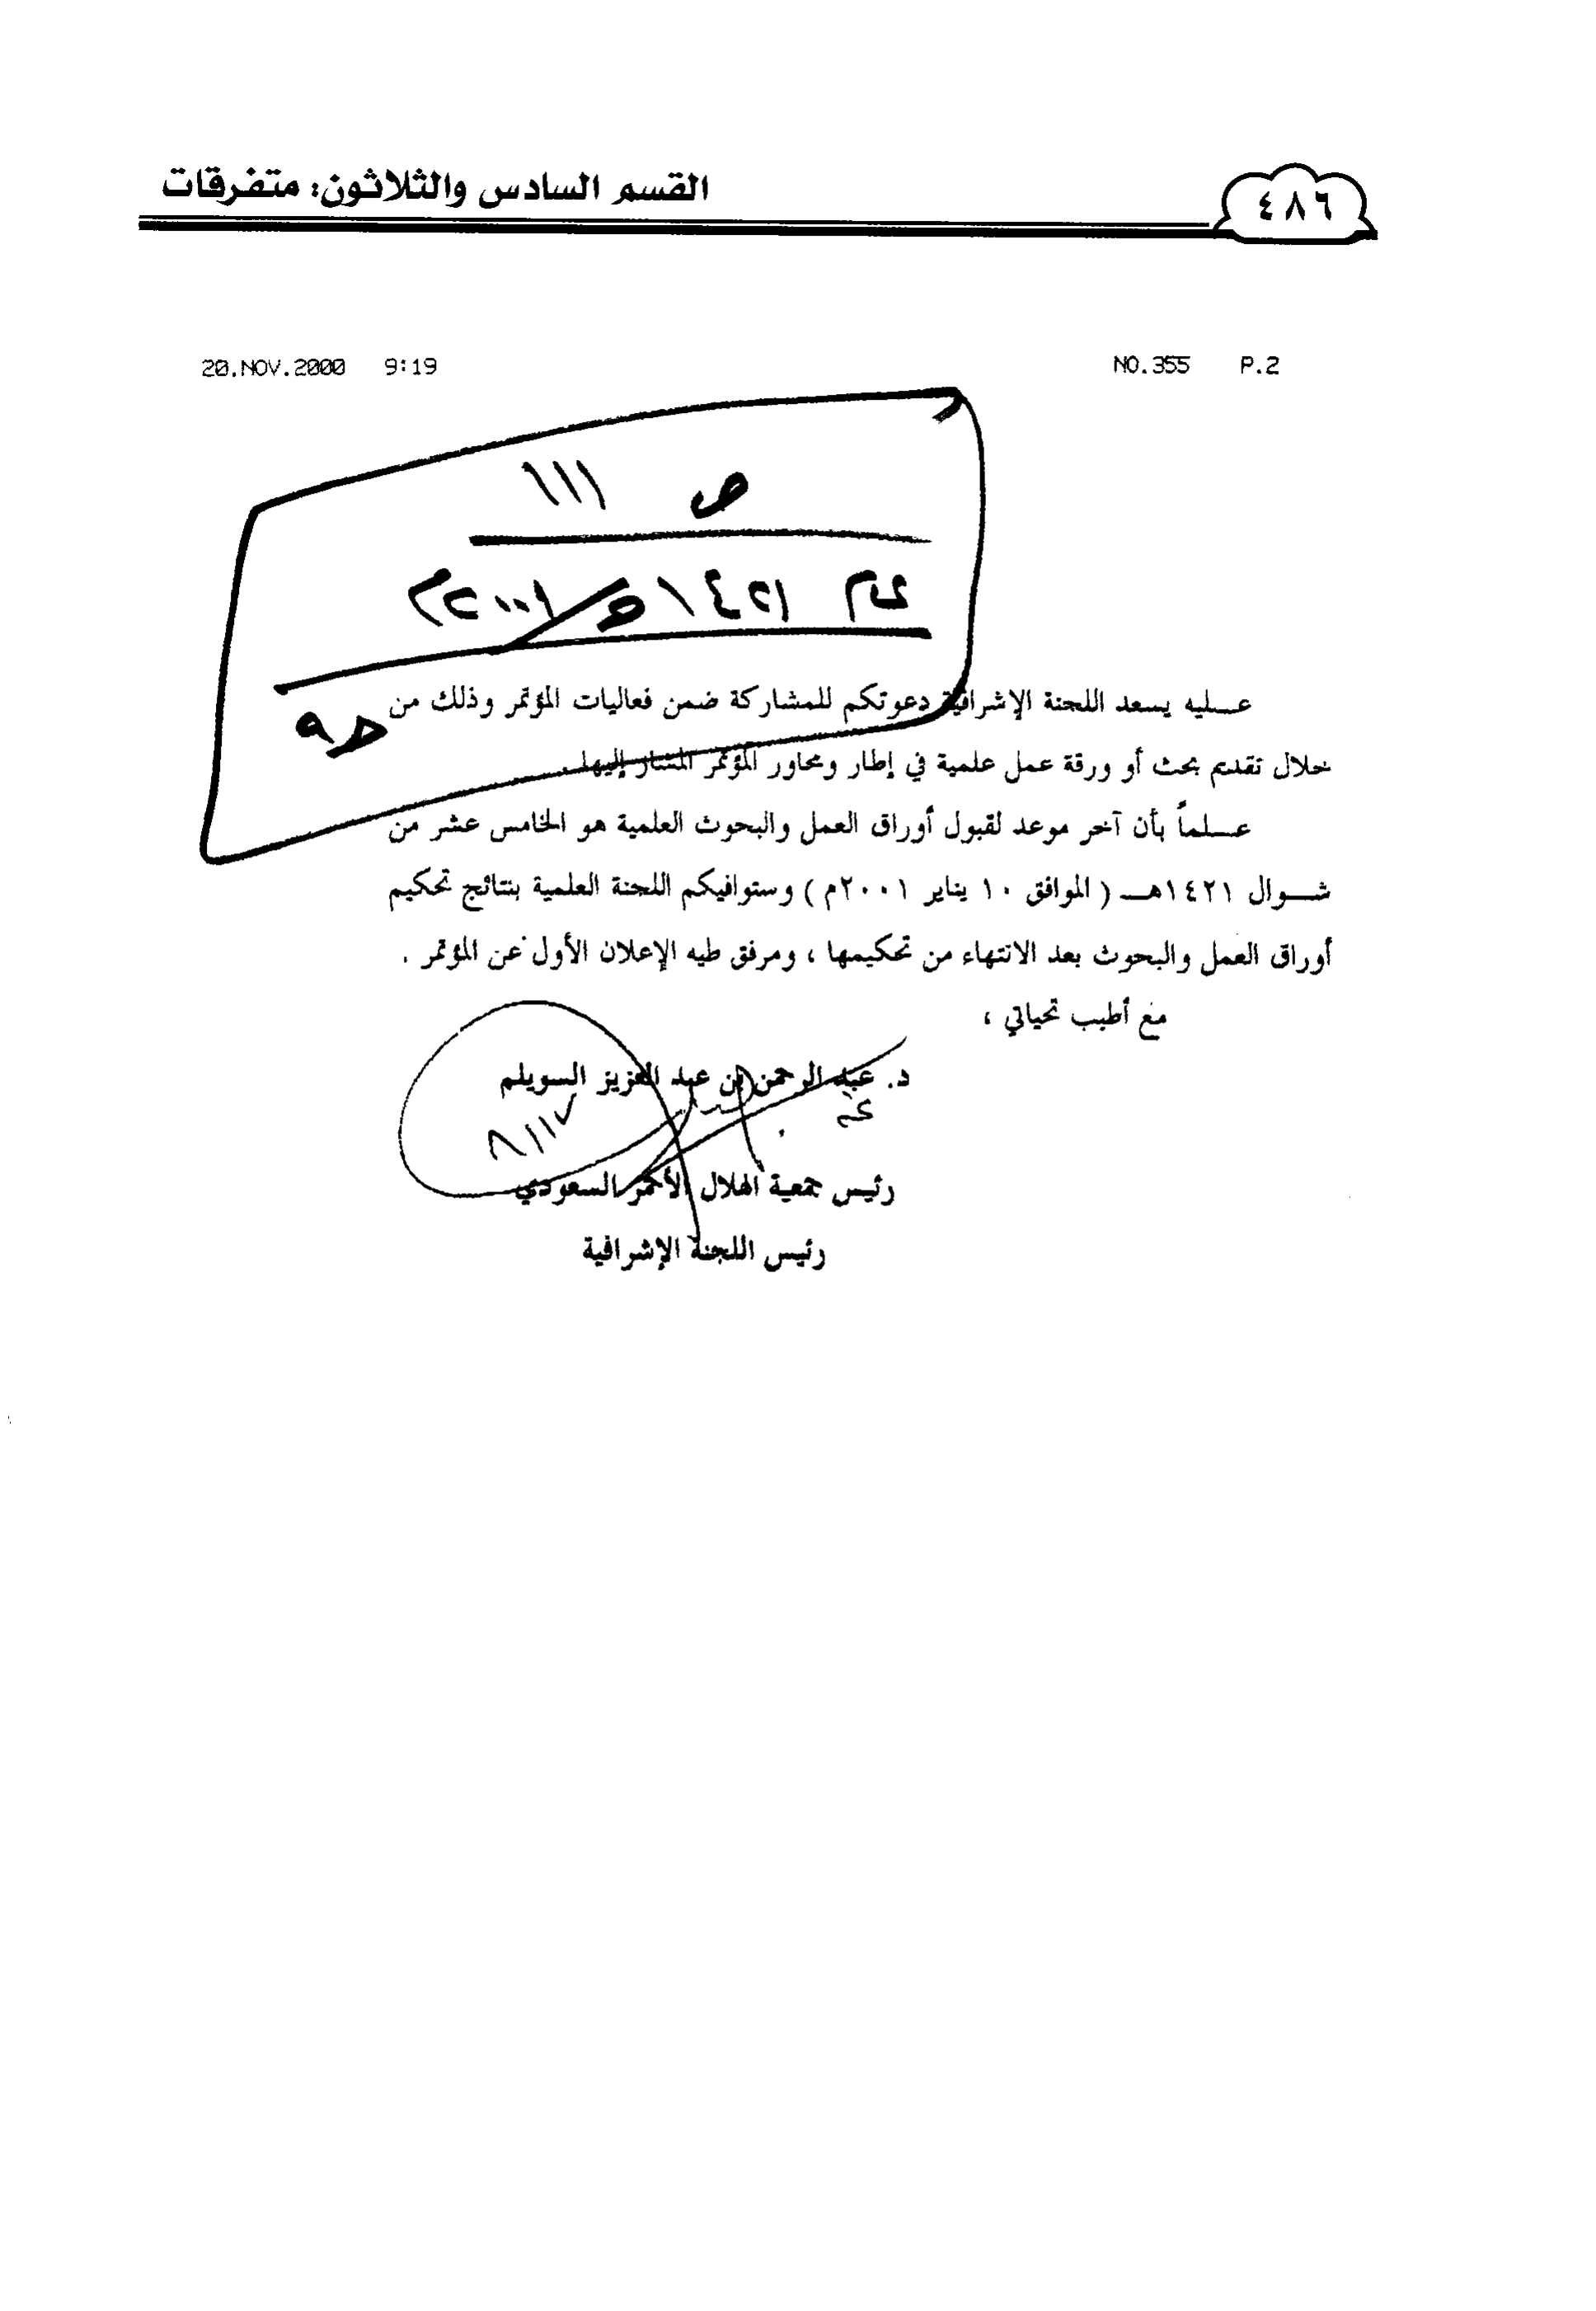 ٤٨٦
القسم السادس والثلاثون: متفرقات
20.NOV.2000 9:19 NO.355 P.2
ص ١١١
عام ١٤٢١هـ/٢٠٠١م
ط٩
عليه يسعد اللجنة الإشرافية دعوتكم للمشاركة ضمن فعاليات المؤتمر وذلك من
خلال تقديم بحث أو ورقة عمل علمية في إطار ومحاور المؤتمر المشار إليها .
علماً بأن آخر موعد لقبول أوراق العمل والبحوث العلمية هو الخامس عشر من
شوال ١٤٢١هـ ( الموافق ١٠ يناير ٢٠٠١م ) وستوافيكم اللجنة العلمية بنتائج تحكيم
أوراق العمل والبحوث بعد الانتهاء من تحكيمها ، ومرفق طيه الإعلان الأول عن المؤتمر .
مع أطيب تحياتي ،
د. عبد الرحمن بن عبد العزيز السويلم
رئيس جمعية الهلال الأحمر السعودي
رئيس اللجنة الإشرافية